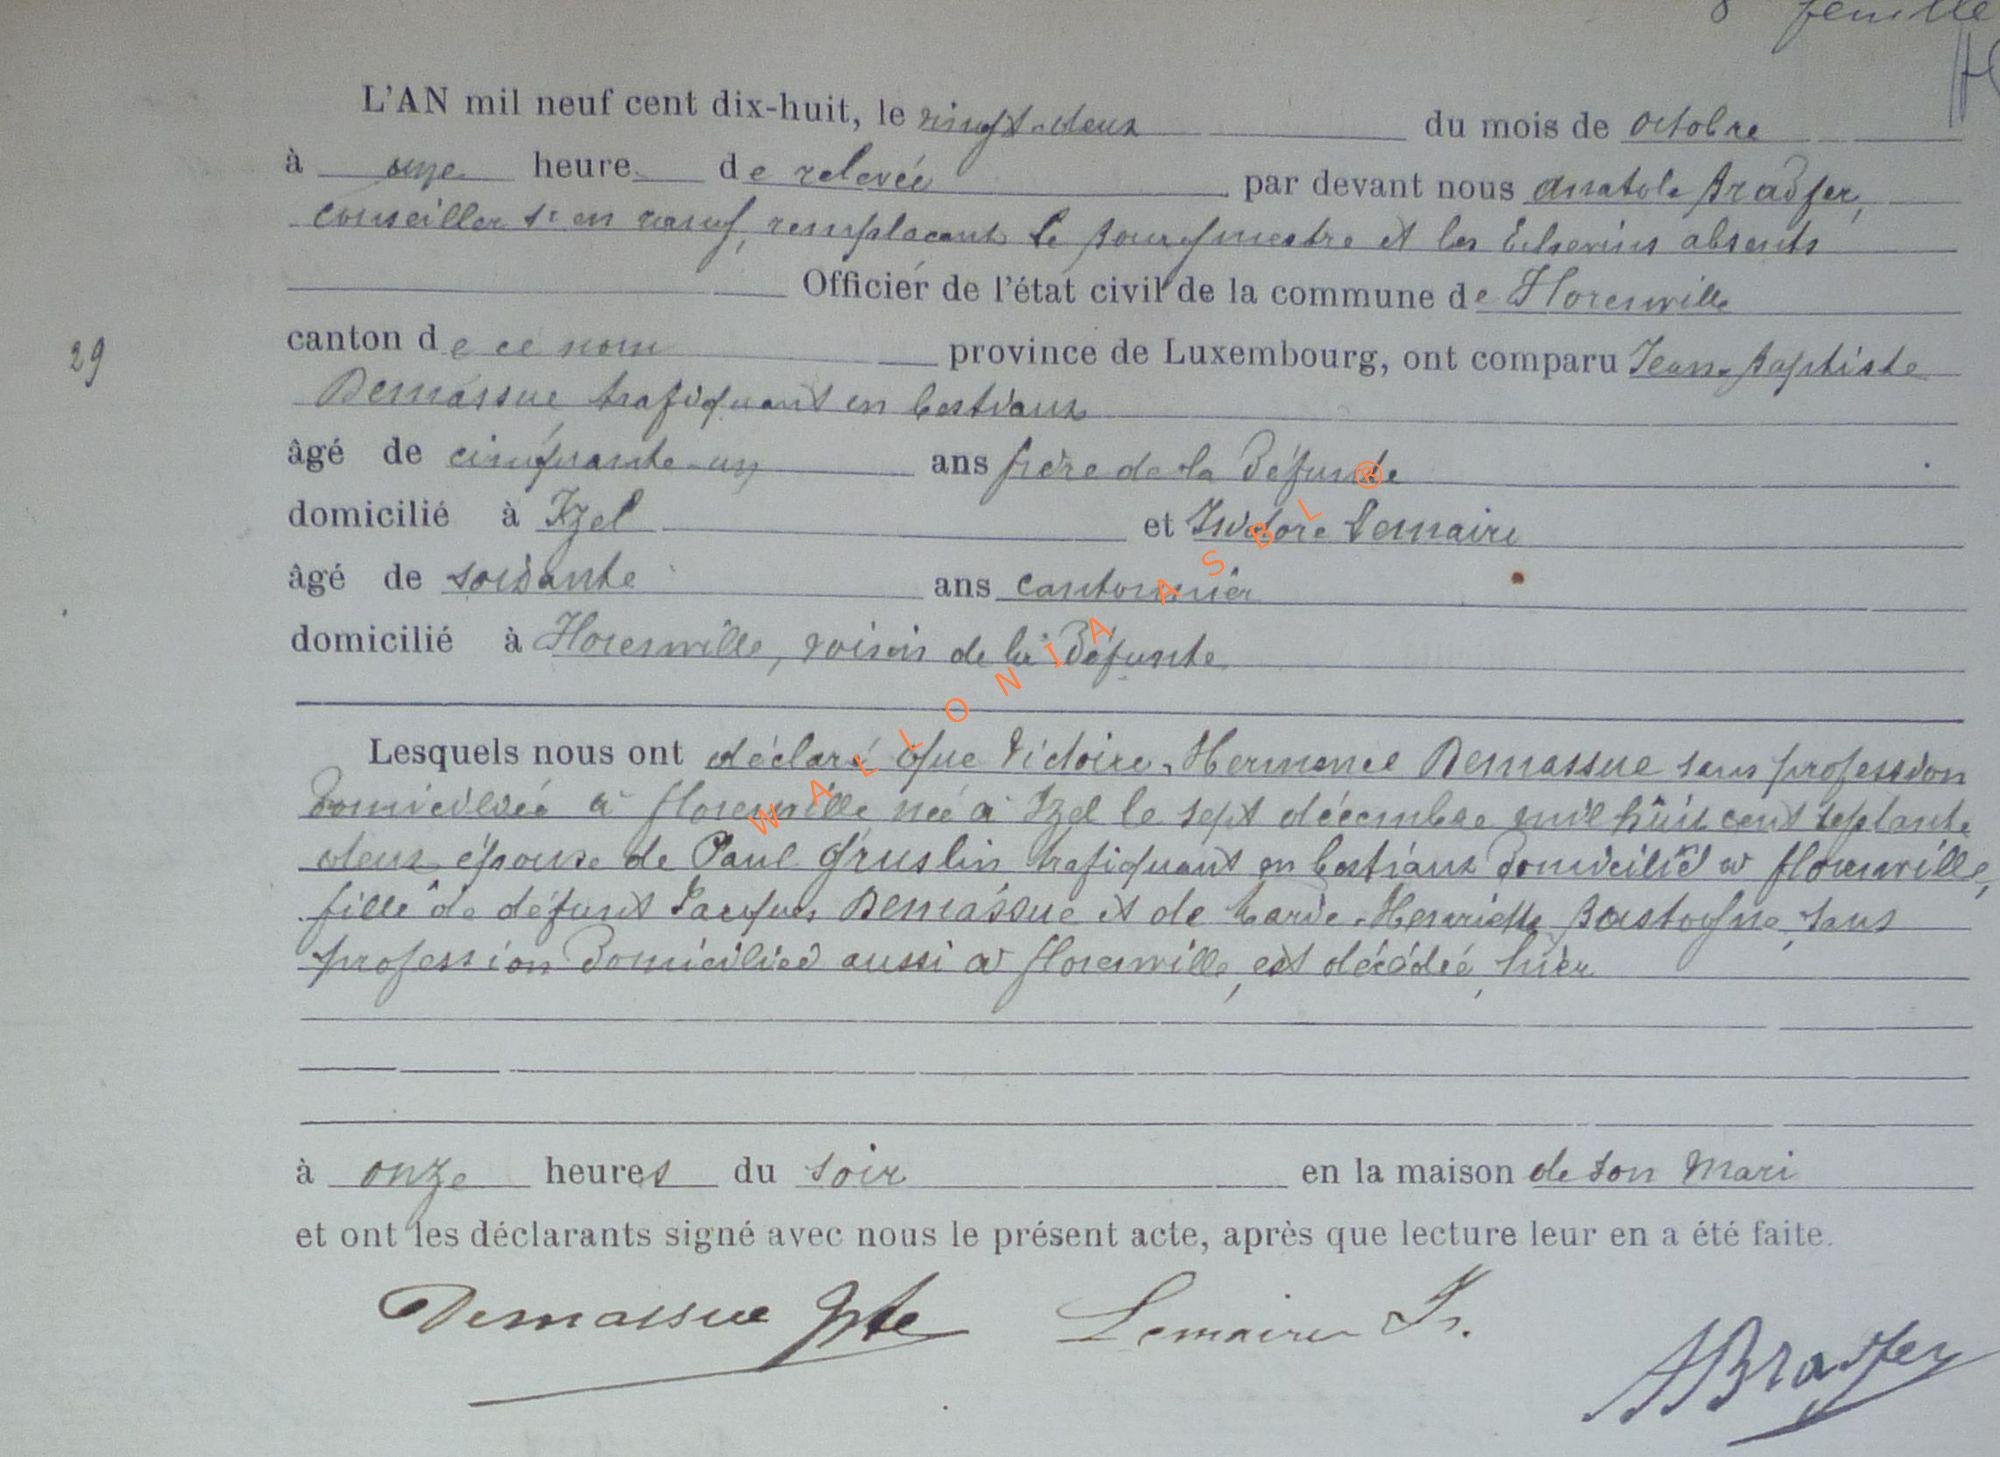 8 feuille
L'AN mil neuf cent dix-huit, le vingt-deux du mois de octobre
à une heure de relevée par devant nous Anatole Bradfer,
conseiller 1r en rang, remplaçant le Bourgmestre et les Echevins absents
Officier de l'état civil de la commune de Florenville
canton de ce nom province de Luxembourg, ont comparu Jean-Baptiste
Demassue trafiquant en bestiaux
29
âgé de cinquante-un ans frère de la Défunte
domicilié à Izel et Isidore Lemaire
âgé de soixante ans cantonnier
domicilié à Florenville, voisin de la Défunte
Lesquels nous ont déclaré que Victoire-Hermance Demassue sans profession
Domiciliée à Florenville née à Izel le sept décembre mil huit cent septante
deux épouse de Paul Gruslin trafiquant en bestiaux Domicilié à Florenville,
fille de défunt Jacques Demassue et de Marie-Henriette Bastogne, sans
profession Domiciliée aussi à Florenville, est décédée, hier
à onze heures du soir en la maison de son Mari
et ont les déclarants signé avec nous le présent acte, après que lecture leur en a été faite.
Demassue Jbte Lemaire Is. ABradfer
WALLONIA ASBL ®